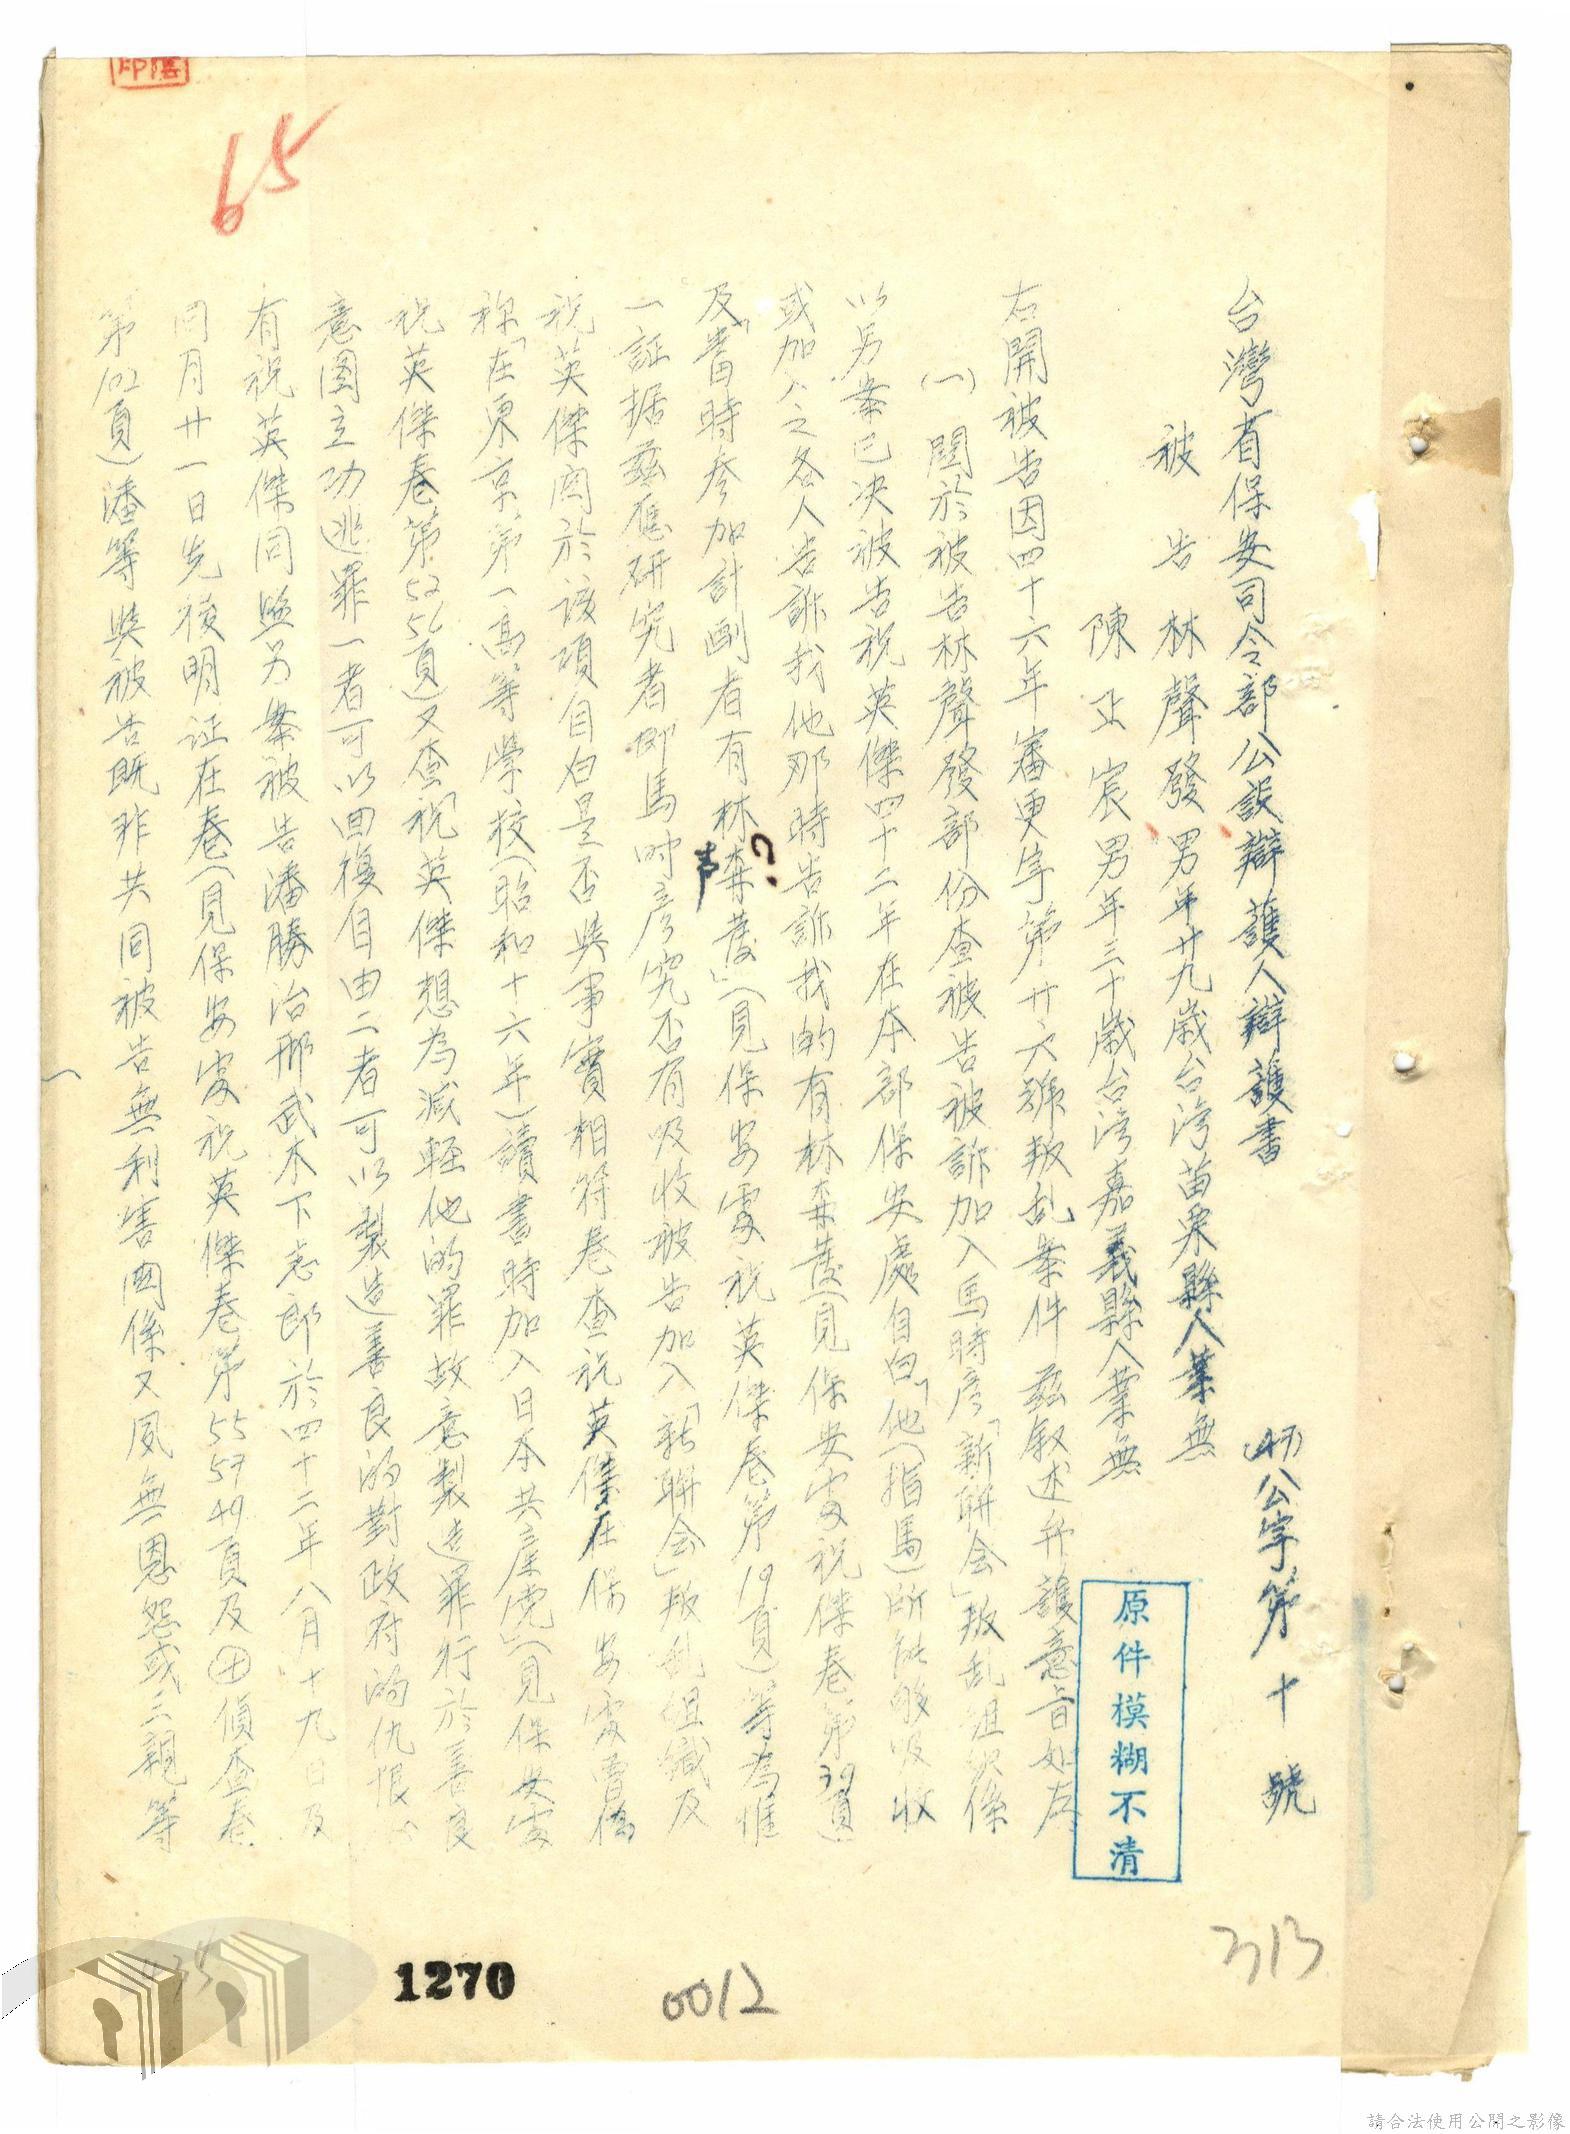 台灣省保安司令部公設辯護人辯護書
(47)公字第十號
被告林聲發男年廿九歲台湾苗栗縣人業無
陳正宸男年三十歲台湾嘉義縣人業無
右開被告因四十六年審更字第廿六號叛乱案件茲叙述弁護意旨如左
(一)関於被告林聲發部份查被告被訴加入馬時彦「新联会」叛乱組织係
以另案已决被告祝英傑四十二年在本部保安處自白「他(指馬)所能够吸收
或加入之各人告訴我他那時告訴我的有林森茂(見保安処祝傑卷第39頁)
及「當時参加計劃者有林森茂」(見保安處祝英傑卷第19頁)等為惟
声?
一証据茲應研究者即馬时彦究否有吸收被告加入「新联会」叛乱组織及
祝英傑関於该項自白是否與事實相符卷查祝英傑在保安處曾偽
称「在東京第一高等學校(昭和十六年)讀書時加入日本共産党」(見保安處
祝英傑卷第52 56頁)又查「祝英傑想為减輕他的罪故意製造罪行於善良
意图立功逃罪一者可以回復自由二者可以製造善良的對政府的仇恨心
有祝英傑同監另案被告潘勝治邢武木下志郎於四十二年八月十九日及
同月廿一日先後明証在卷(見保安處祝英傑卷第55 57 49頁及㊉偵查卷
第102頁)潘等與被告既非共同被告無利害関係又夙無恩怨或三親等
原件模糊不清
印信
65
313
0012
1270
435
請合法使用公開之影像